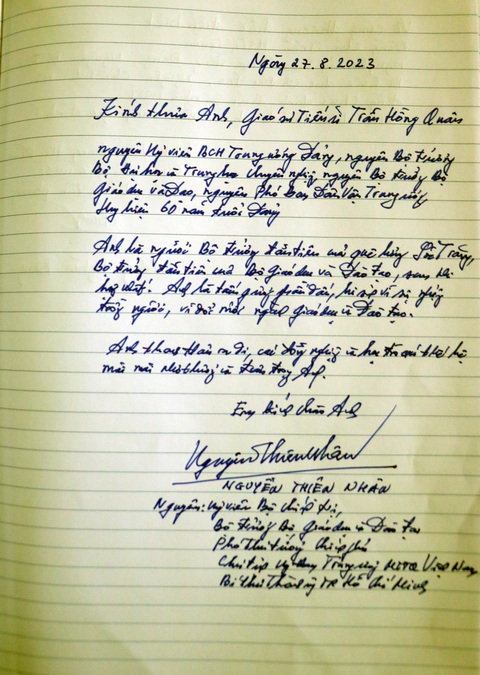 Ngày 27.8.2023
Kính thưa Anh, Giáo sư Tiến sĩ Trần Hồng Quân
nguyên Uỷ viên BCH Trung ương Đảng, nguyên Bộ trưởng
Bộ Đại học và Trung học chuyên nghiệp, nguyên Bộ trưởng Bộ
Giáo dục và Đào tạo, nguyên Phó Ban Dân Vận Trung ương
Huy hiệu 60 năm tuổi Đảng
Anh là người Bộ trưởng đầu tiên của quê hương Sóc Trăng,
Bộ trưởng đầu tiên của Bộ Giáo dục và Đào tạo, sau khi
hợp nhất. Anh là tấm gương phấn đấu, hi sinh vì sự nghiệp
trồng người, vì đổi mới ngành giáo dục và Đào tạo.
Anh thanh thản ra đi, các đồng nghiệp và học trò các thế hệ
mãi mãi nhớ thương và kính trọng Anh.
Em kính chào Anh
Nguyễn Thiện Nhân
NGUYỄN THIỆN NHÂN
Nguyên: Uỷ viên Bộ chính trị,
Bộ trưởng Bộ giáo dục và Đào tạo
Phó Thủ tướng chính phủ
Chủ tịch Uỷ ban Trung ương MTTQ Việt Nam
Bí thư Thành uỷ TP Hồ Chí Minh